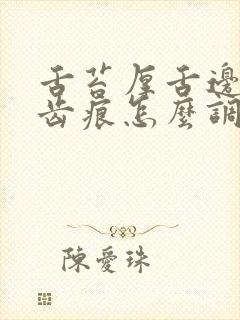 舌苔厚舌邊
齒痕怎麼調
陳愛珠